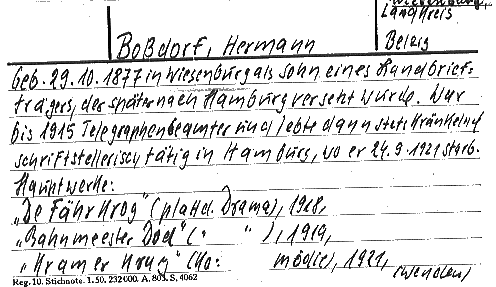 Wiesenburg,
Landkreis
Boßdorf, Hermann
Belzig
Geb. 29.10.1877 in Wiesenburg als Sohn eines Landbrief-
trägers, der später nach Hamburg versetzt wurde. War
bis 1915 Telegraphenbeamter und lebte dann stets kränkelnd
schriftstellerisch tätig in Hamburg, wo er 24.9.1921 starb.
Hauptwerke:
„De Fährkrog" (plattd. Drama), 1918,
„Bahnmeester Dod" ( " " ), 1919,
„Kramer Kray" (Ko: mödie), 1921,
(wenden)
Reg. 10. Stichnote. 1. 50. 232000. A. 803. S. 4062